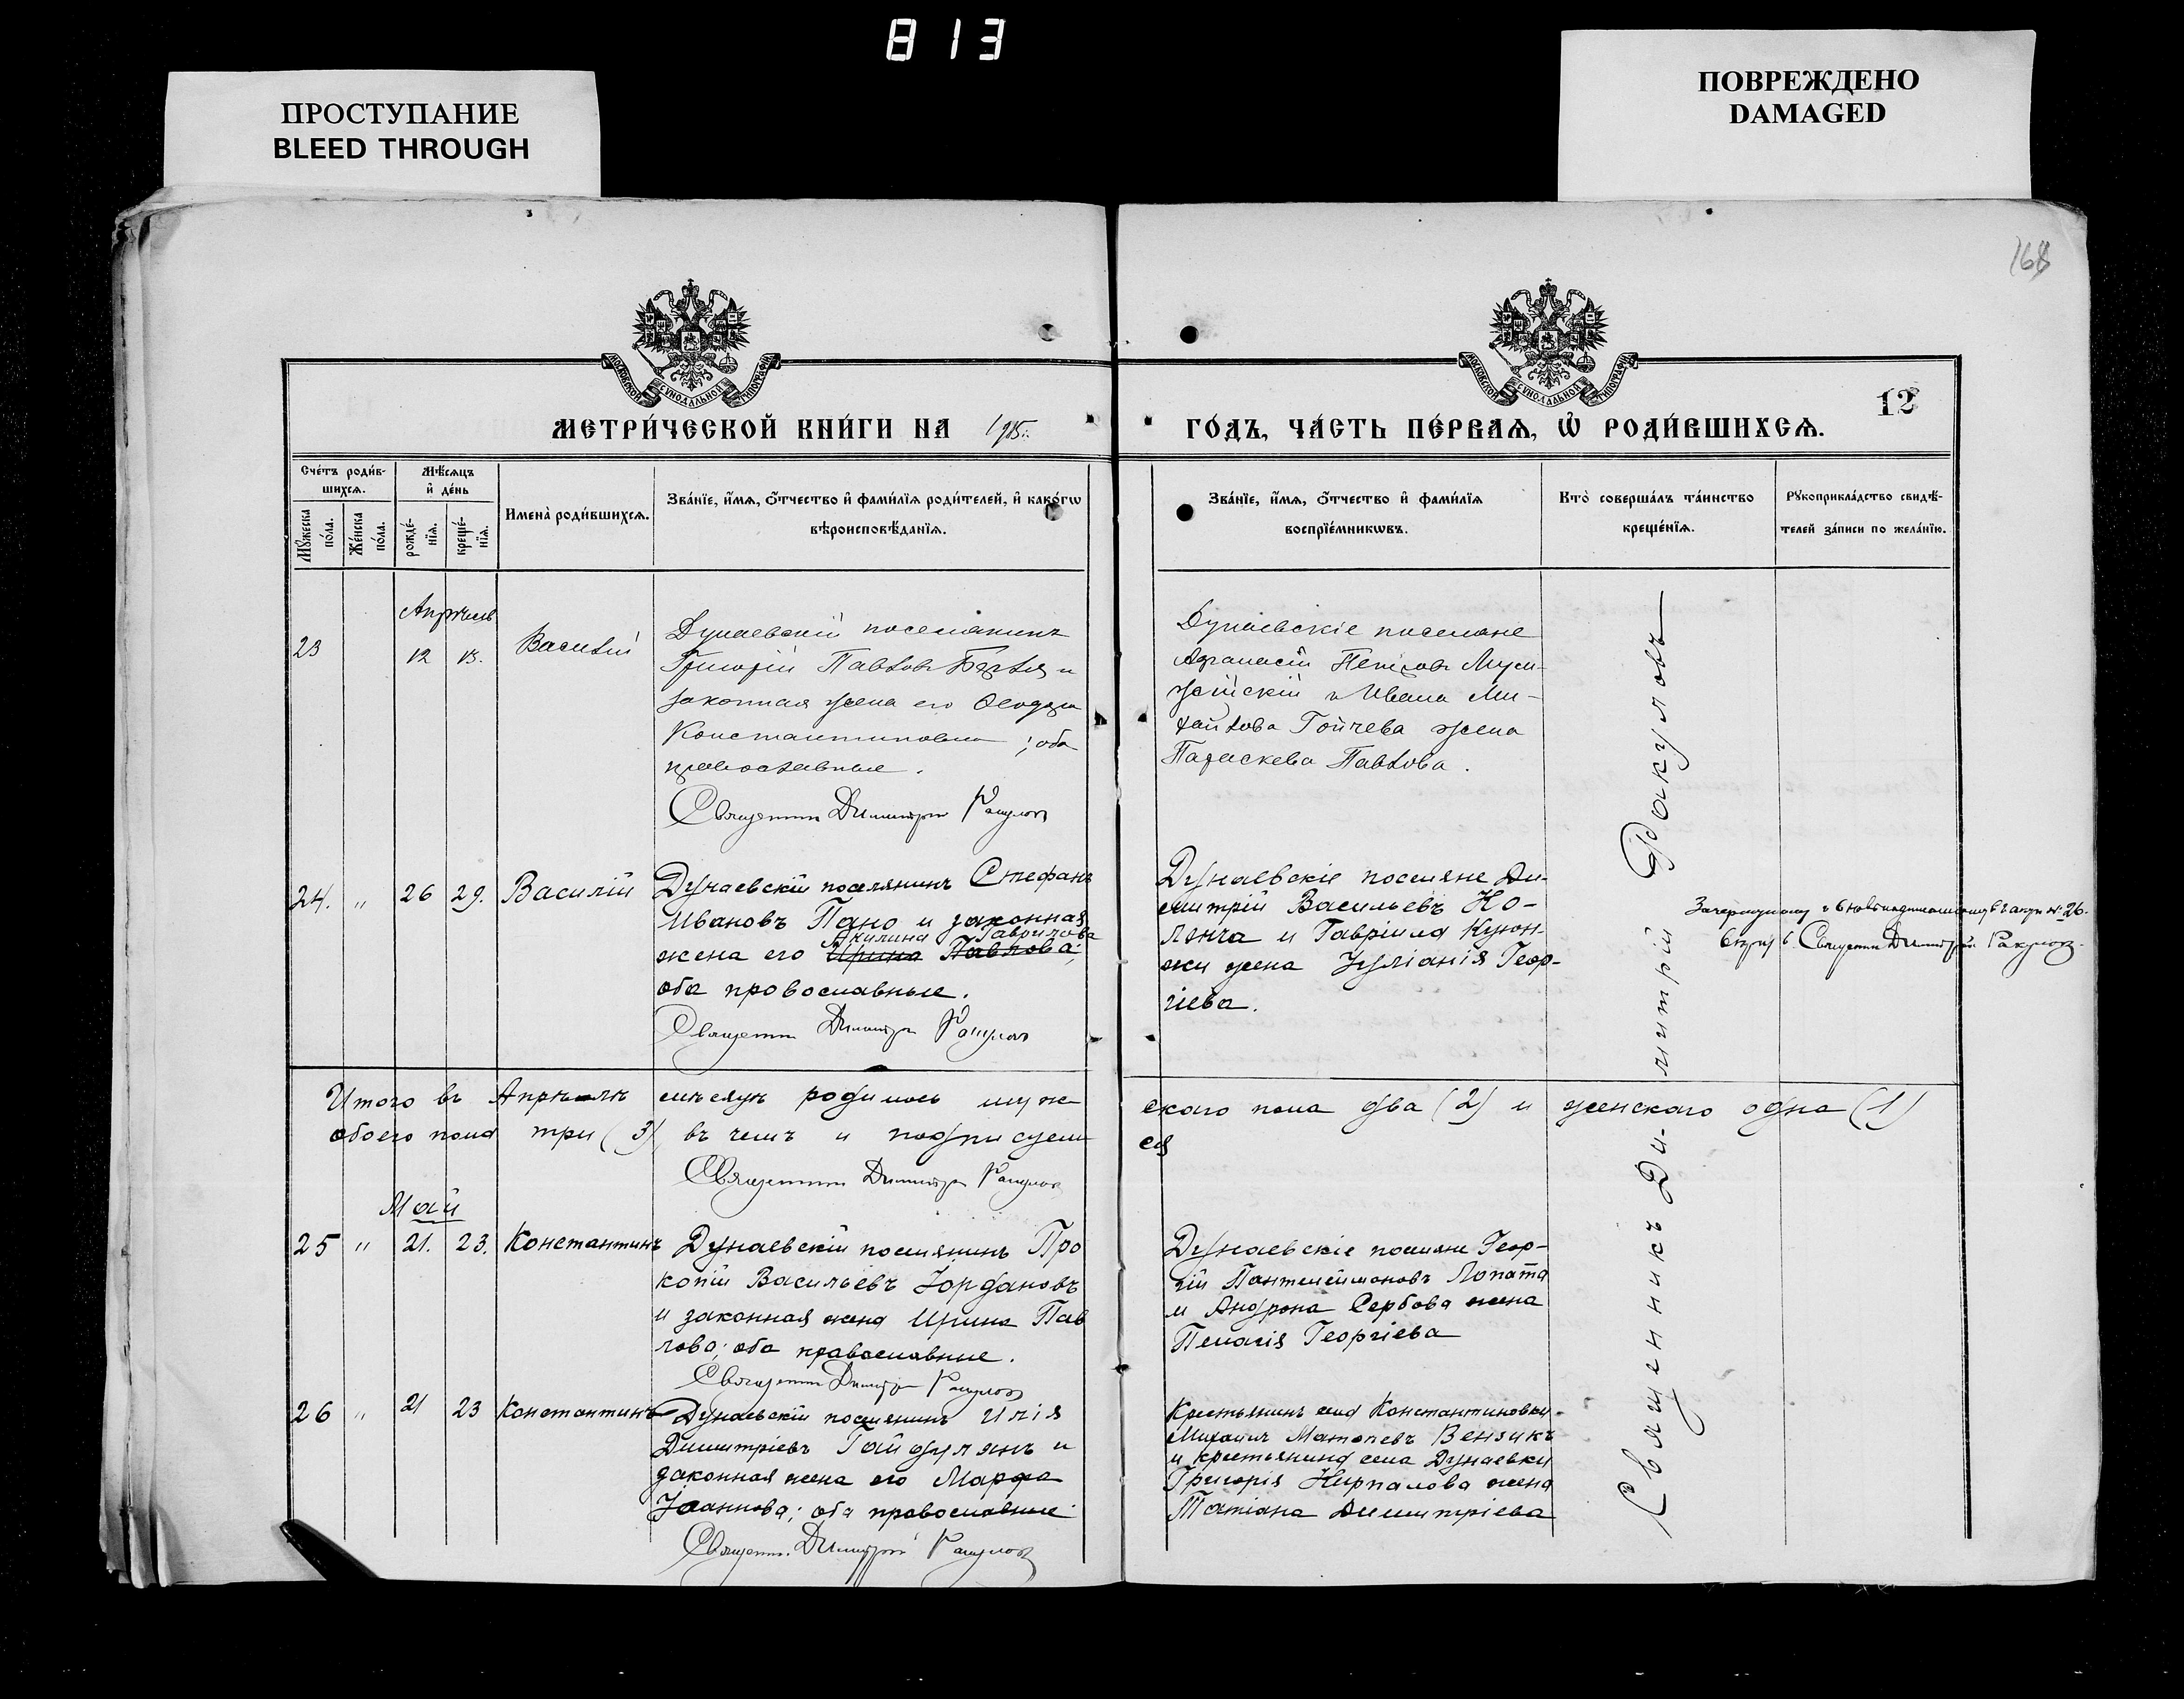 813
ПРОСТУПАНИЕ
BLEED THROUGH
ПОВРЕЖДЕНО
DAMAGED
168
12
МЕТРИ́ЧЕСКОЙ КНИ́ГИ НА 1915
ГО́ДЪ, ЧА́СТЬ ПЕ́РВАѦ, Ѡ РОДИ́ВШИХСѦ.
Сче́тъ роди́в-
шихсѧ.
Мѣ́сѧцъ
и҆ де́нь
Мꙋ́жеска
по́ла.
Же́нска
по́ла.
рожде́-
нїѧ.
креще́-
нїѧ.
Имена̀ роди́вшихсѧ.
Зва́нїе, и҆́мѧ, ѻ҆́тчество и҆ фами́лїѧ роди́телей, и҆ како́гѡ
вѣроисповѣ́данїѧ.
Зва́нїе, и҆́мѧ, ѻ҆́тчество и҆ фами́лїѧ
воспрїе́мникѡвъ.
Кто̀ соверша́лъ та́инство
креще́нїѧ.
Рꙋкоприкла́дство свидѣ́-
телей за́писи по жела́нїю.
Апрѣль
23 12 13. Василій
Дунаевскій поселянинъ
Григорій Павловъ и
законная жена его Ѳеодора
Константинова; оба
православные.
Священникъ Димитрій Ракуловъ
Дунаевскіе поселяне
Афанасій
и Ивана Ми-
хайлова Гойчева жена
Параскева Павлова.
24. " 26 29. Василій
Дунаевскій поселянинъ Стефанъ
Ивановъ Пано и законная
Акилина Гаврилова
жена его Ирина Павлова;
оба провославные.
Священникъ Димитрій Ракуловъ
Дунаевскіе поселяне Ди-
митрій Васильевъ Ко-
и Гавріила
жена Іуліанія Геор-
гіева.
Зачеркнутому и вновь надписанному въ актѣ № 26.
вѣрить Священникъ Димитрій Ракуловъ.
Итого въ Апрѣлѣ мѣсяцѣ родилось муже
скаго пола два (2) и женскаго одна (1)
обоего пола три (3), въ чемъ и подписуем
ся
Священникъ Димитрій Ракуловъ
Май
25 " 21. 23. Константинъ
Дунаевскій поселянинъ Про
копій Васильевъ Іордановъ
и законная жена Ирина Пав
лова; оба православные.
Священникъ Димитрій Ракуловъ
Дунаевскіе поселяне Геор-
гій Пантелеймоновъ Лопата
и Андрона Сербова жена
Пелагія Георгіева
26 " 21 23 Константинъ
Дунаевскій поселянинъ Илія
Димитріевъ Гайдулянъ и
законная жена его Марфа
Іоаннова; оба провославные
Священ. Димитрій Ракуловъ
Крестьянинъ села Константиновки
Михаилъ
и крестьянина села Дунаевки
Григорія Кирпалова жена
Татіана Димитріева
Священникъ Димитрій Ракуловъ